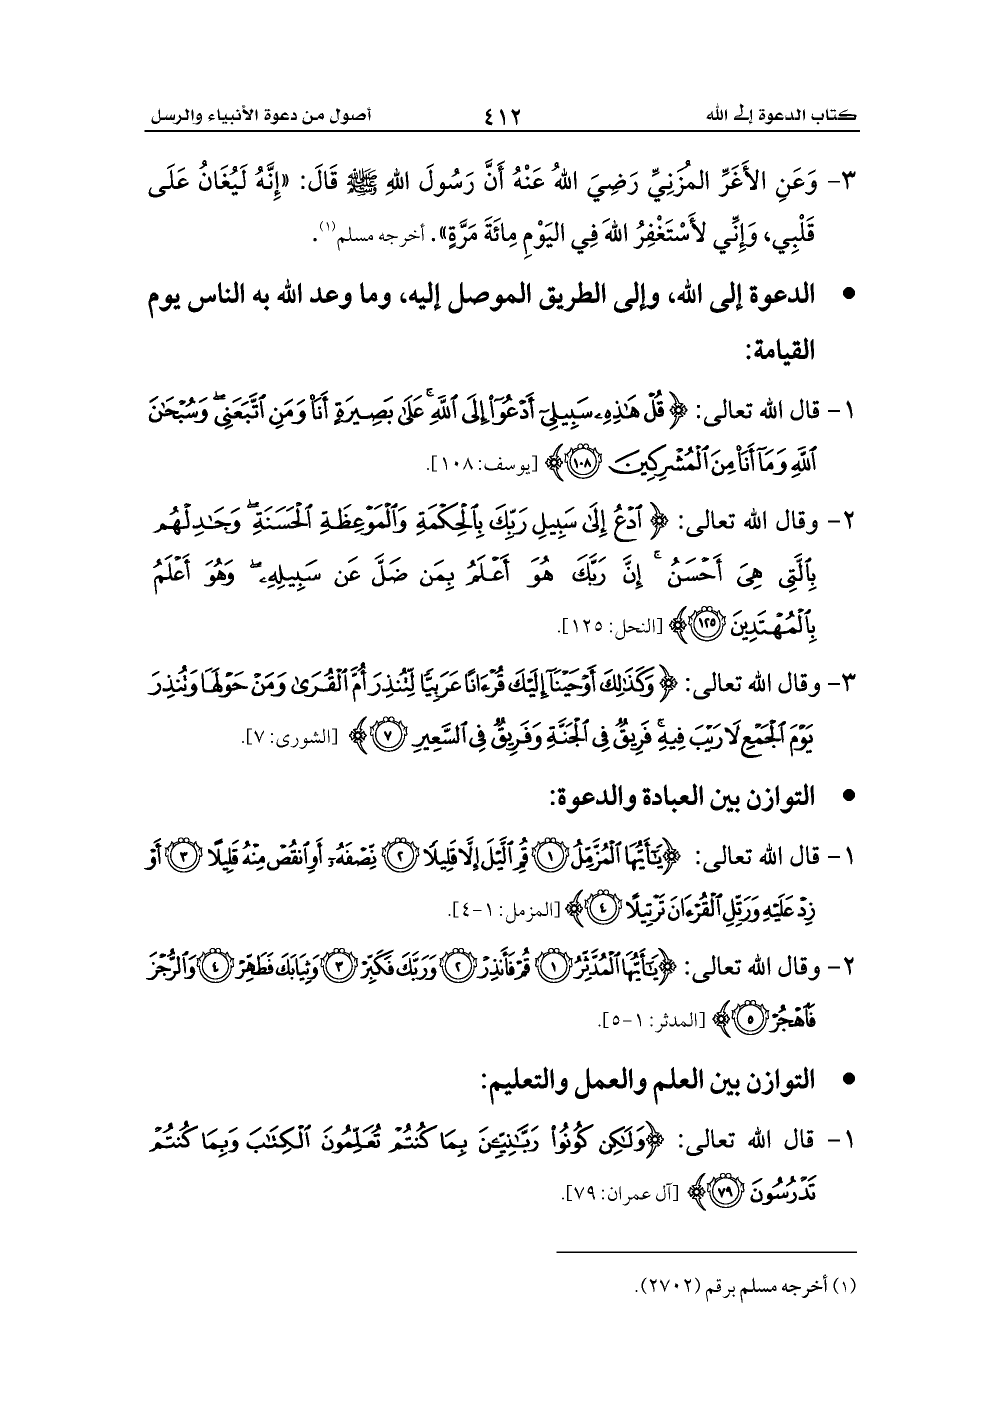 كتاب الدعوة إلى الله ٤١٢ أصول من دعوة الأنبياء والرسل
٣- وَعَنِ الأَغَرِّ المُزَنِيِّ رَضِيَ اللهُ عَنْهُ أَنَّ رَسُولَ اللهِ ﷺ قَالَ: «إِنَّهُ لَيُغَانُ عَلَى
قَلْبِي، وَإِنِّي لأَسْتَغْفِرُ اللهَ فِي اليَوْمِ مِائَةَ مَرَّةٍ». أخرجه مسلم(١).
● الدعوة إلى الله، وإلى الطريق الموصل إليه، وما وعد الله به الناس يوم
القيامة:
١- قال الله تعالى: ﴿قُلْ هَٰذِهِۦ سَبِيلِيٓ أَدْعُوٓا۟ إِلَى ٱللَّهِ ۚ عَلَىٰ بَصِيرَةٍ أَنَا۠ وَمَنِ ٱتَّبَعَنِي ۖ وَسُبْحَٰنَ
ٱللَّهِ وَمَآ أَنَا۠ مِنَ ٱلْمُشْرِكِينَ ١٠٨﴾ [يوسف: ١٠٨].
٢- وقال الله تعالى: ﴿ٱدْعُ إِلَىٰ سَبِيلِ رَبِّكَ بِٱلْحِكْمَةِ وَٱلْمَوْعِظَةِ ٱلْحَسَنَةِ ۖ وَجَٰدِلْهُم
بِٱلَّتِى هِىَ أَحْسَنُ ۚ إِنَّ رَبَّكَ هُوَ أَعْلَمُ بِمَن ضَلَّ عَن سَبِيلِهِۦ ۖ وَهُوَ أَعْلَمُ
بِٱلْمُهْتَدِينَ ١٢٥﴾ [النحل: ١٢٥].
٣- وقال الله تعالى: ﴿وَكَذَٰلِكَ أَوْحَيْنَآ إِلَيْكَ قُرْءَانًا عَرَبِيًّا لِّتُنذِرَ أُمَّ ٱلْقُرَىٰ وَمَنْ حَوْلَهَا وَتُنذِرَ
يَوْمَ ٱلْجَمْعِ لَا رَيْبَ فِيهِ ۚ فَرِيقٌ فِى ٱلْجَنَّةِ وَفَرِيقٌ فِى ٱلسَّعِيرِ ٧﴾ [الشورى: ٧].
● التوازن بين العبادة والدعوة:
١- قال الله تعالى: ﴿يَٰٓأَيُّهَا ٱلْمُزَّمِّلُ ١ قُمِ ٱلَّيْلَ إِلَّا قَلِيلًا ٢ نِّصْفَهُۥٓ أَوِ ٱنقُصْ مِنْهُ قَلِيلًا ٣ أَوْ
زِدْ عَلَيْهِ وَرَتِّلِ ٱلْقُرْءَانَ تَرْتِيلًا ٤﴾ [المزمل: ١-٤].
٢- وقال الله تعالى: ﴿يَٰٓأَيُّهَا ٱلْمُدَّثِّرُ ١ قُمْ فَأَنذِرْ ٢ وَرَبَّكَ فَكَبِّرْ ٣ وَثِيَابَكَ فَطَهِّرْ ٤ وَٱلرُّجْزَ
فَٱهْجُرْ ٥﴾ [المدثر: ١-٥].
● التوازن بين العلم والعمل والتعليم:
١- قال الله تعالى: ﴿وَلَٰكِن كُونُوا۟ رَبَّٰنِيِّـۧنَ بِمَا كُنتُمْ تُعَلِّمُونَ ٱلْكِتَٰبَ وَبِمَا كُنتُمْ
تَدْرُسُونَ ٧٩﴾ [آل عمران: ٧٩].
(١) أخرجه مسلم برقم (٢٧٠٢).